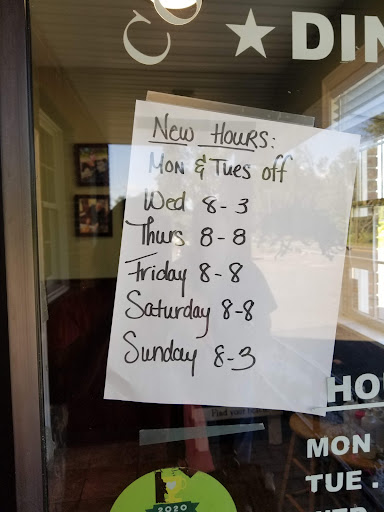 ★ DIN
New Hours:
Mon & Tues off
Wed 8-3
Thurs 8-8
Friday 8-8
Saturday 8-8
Sunday 8-3
HO
MON
TUE.
2020